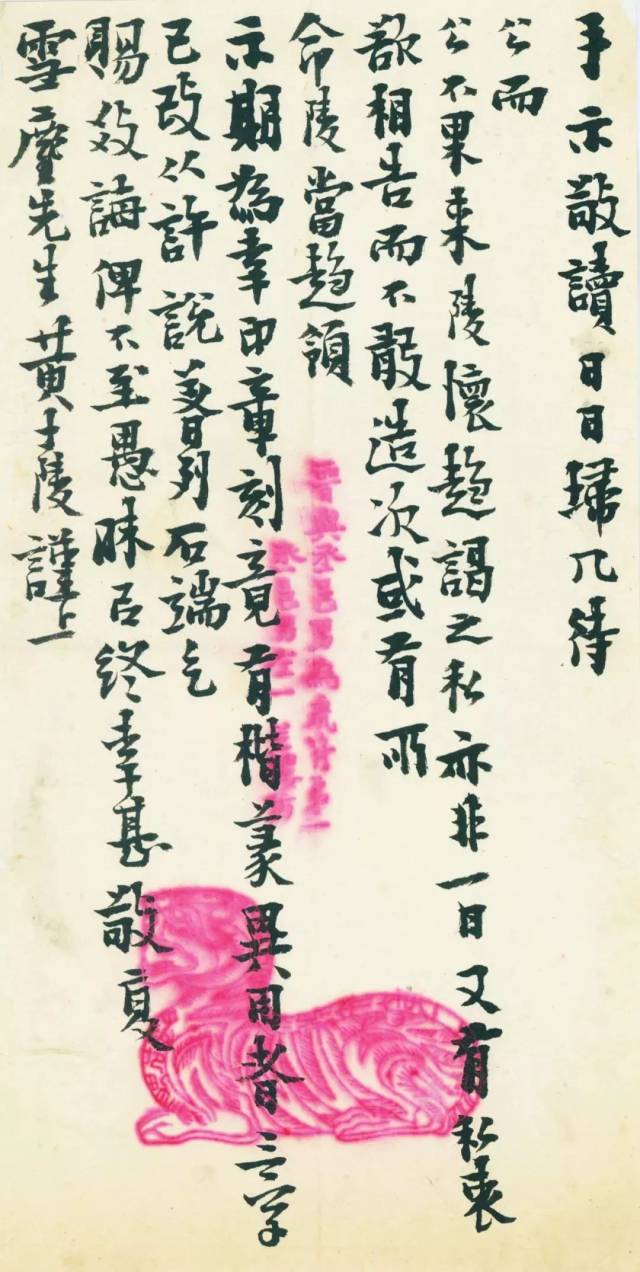 手示敬讀日日掃几待
公而
公不果來陵懷趨謁之私亦非一日又有私衷
欲相告而不敢造次或有所
命陵當趨領
示期為幸印章刻竟有楷篆異同者三字
已改从許說列石端乞
賜敎誨俾不至愚昧㠯終幸甚敬复
雪先生黃士陵謹上